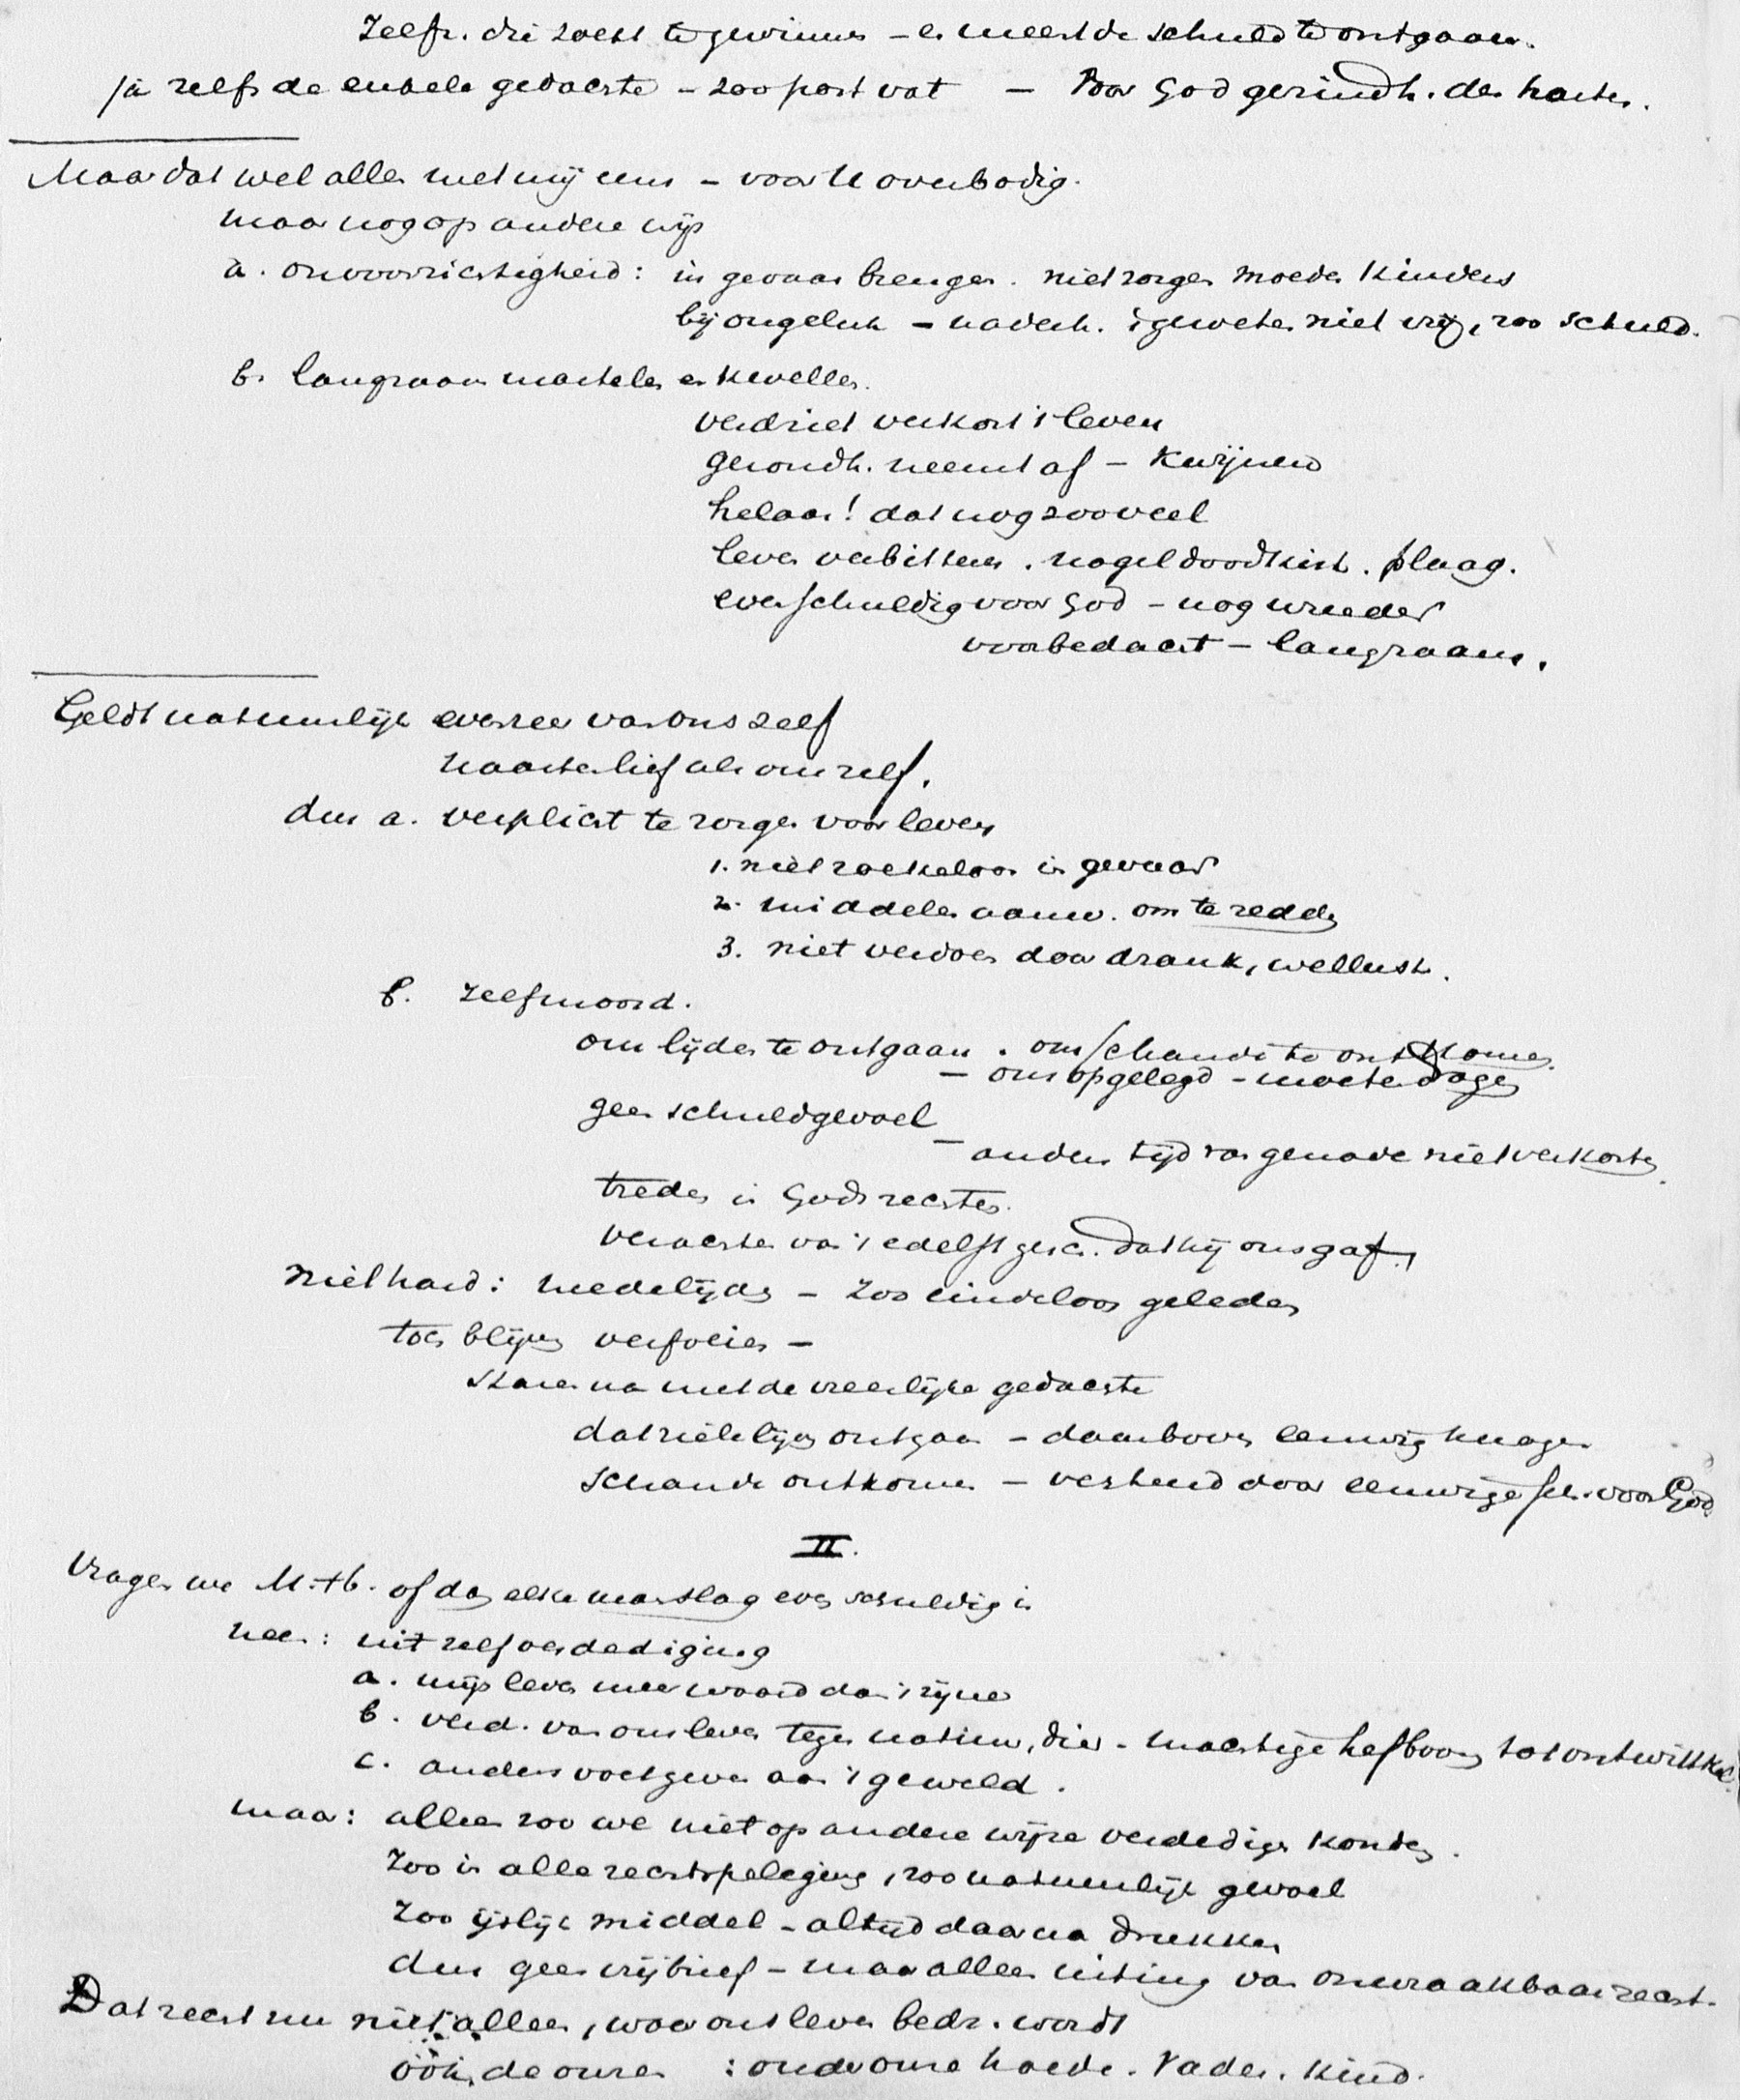 Zelfz. die zoekt te gewinnen – en meest de schuld te ontgaan.
ja zelfs de enkele gedachte – zoo post vat – voor God gezindh. des harten.
Maar dat wel allen met mij eens – voor U overbodig.
maar nog op andere wijs
a. onvoorzichtigheid: in gevaar brengen. niet zorgen moeder kinders
bij ongeluk – nadenk. 't geweten niet vrij, zoo schuld.
b. langzaam martelen en kwellen.
verdriet verkort 't leven
gezondh. neemt af – kwijnend
helaas! dat nog zooveel
leven verbitteren. nagel doodkist. plaag.
even schuldig voor God – nog wreeder
voorbedacht – langzaam.
Geldt natuurlijk evenzeer van ons zelf
naasten lief als ons zelf.
dus a. verplicht te zorgen voor leven
1. niet roekeloos in gevaar
2. middelen aanw. om te redden
3. niet verdoen door drank, wellust.
b. Zelfmoord.
om lijden te ontgaan. om schande te ontkomen.
– ons opgelegd – moeten dragen
geen schuldgevoel
– anders tijd van genade niet verkorten.
treden in Gods rechten.
verachten van 't edelst gesch. dat hij ons gaf.
niet hard: medelijden – zoo eindeloos geleden
toch blijven verfoeien –
staren na met de vreeselijke gedachte
dat niet lijden ontgaan – daarboven eeuwig knagen
schande ontkomen – verteerd door eeuwige sch. voor God
II.
Vragen we M. + b. of dan elke manslag even schuldig is
neen: uit zelfverdediging
a. mijn leven meer waard dan 't zijne
b. verd. van ons leven tegen natuur, dier – machtige hefboom tot ontwikkel.
c. anders voetgeven aan 't geweld.
maar: alleen zoo we niet op andere wijze verdedigen konden.
Zoo in alle rechtspleging, zoo natuurlijk gevoel
Zoo ijslijk middel – altijd daarna drukken
dus geen vrijbrief – maar alleen uiting van onwraakbaar recht.
Dat recht nu niet alleen, waar ons leven bedr. wordt
óók de onzen : onder onze hoede. Vader. Kind.